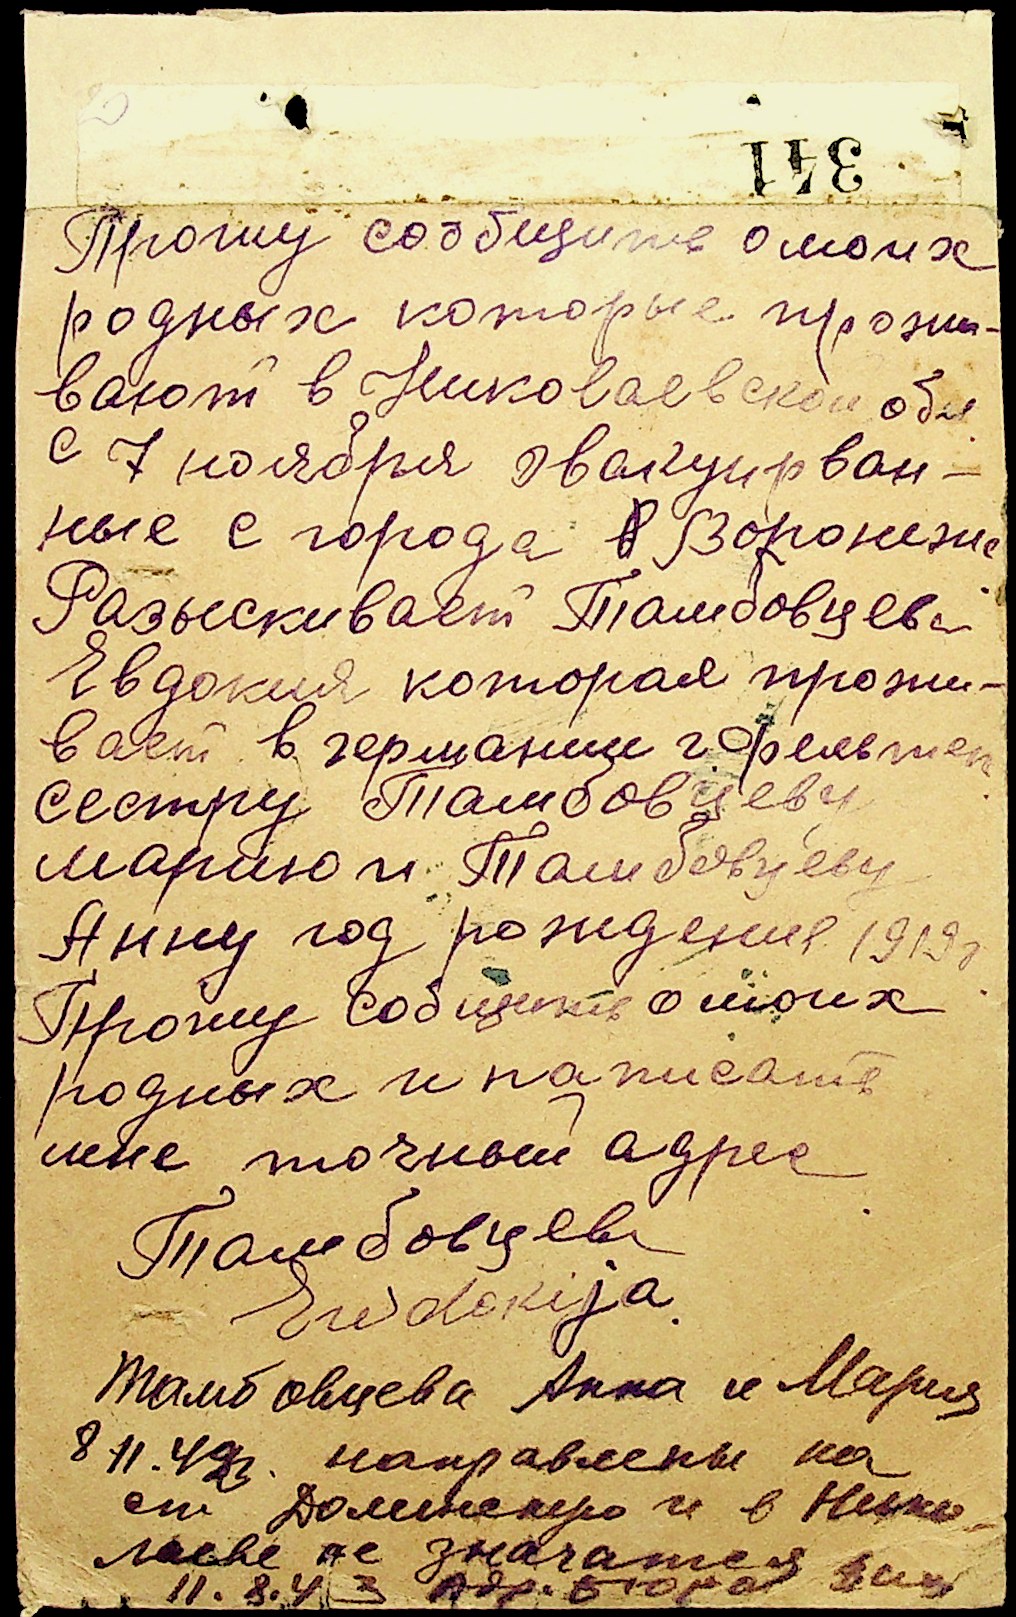 341
Прошу сообщить о моих
родных которые прожи-
вают в Николаевской обл
с 7 ноября эвакуирван-
ные с города в Воронежс
Разыскивает Тамбовцева
Евдокия которая прожи-
вает в германии г.
сестру Тамбовцеву
марию и Тамбовцеву
Анну год рождения 1919г
Прошу собщить о моих
родных и написать
мне точный адрес
Тамбовцева
Ewdokija.
Тамбовцева Анна и Мария
8 11.42г. направлены на
ст Долинскую и в Нико-
лаеве не значатся
11.8.43 Адр. Бюро